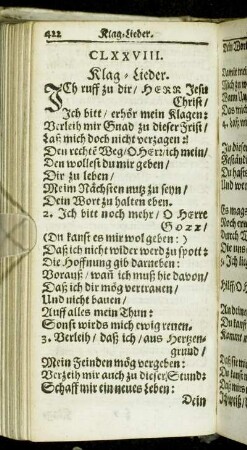 422 Klag-Lieder.
CLXXVIII.
Klag-Lieder.
ICh ruff zu dir/ HERR Jesu
Christ/
Ich bitt/ erhör mein Klagen:
Verleih mir Gnad zu dieser Frist/
Laß mich doch nicht verzagen:
Den rechtē Weg/ O HErr/ ich mein/
Den wollest du mir geben/
Dir zu leben/
Meim Nächsten nutz zu seyn/
Dein Wort zu halten eben.
2. Ich bitt noch mehr/ O HErre
GOTT/
(Du kanst es mir wol geben:)
Daß ich nicht wider werd zu spott:
Die Hoffnung gib darneben:
Vorauß/ wañ ich muß hie davon/
Daß ich dir mög vertrauen/
Und nicht bauen/
Auff alles mein Thun:
Sonst wirds mich ewig reuen.
3. Verleih/ daß ich/ aus Hertzen-
grund/
Mein Feinden mög vergeben:
Verzeih mir auch zu dieser Stund:
Schaff mir ein neues Leben:
Dein